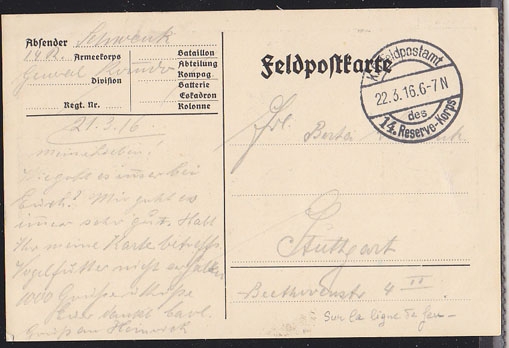 Absender Schwenk
14. R. Armeekorps
Division
Regt. Nr.
Bataillon
Abteilung
Kompag.
Batterie
Eskadron
Kolonne
Feldpostkarte
K.D. Feldpostamt
22.3.16.6-7N
des
14. Reserve-Korps
21.3.16
Meine Lieben!
Wie geht es immer bei
Euch? Mir geht es
immer sehr gut. Habt
Ihr meine Karte betreffs
Vogelfutter nicht erhalten
1000 Grüße & Küsse
Gruß an Heinrich
Frl.
Stuttgart
Beethovenstr 4 II.
Sur la ligne de feu